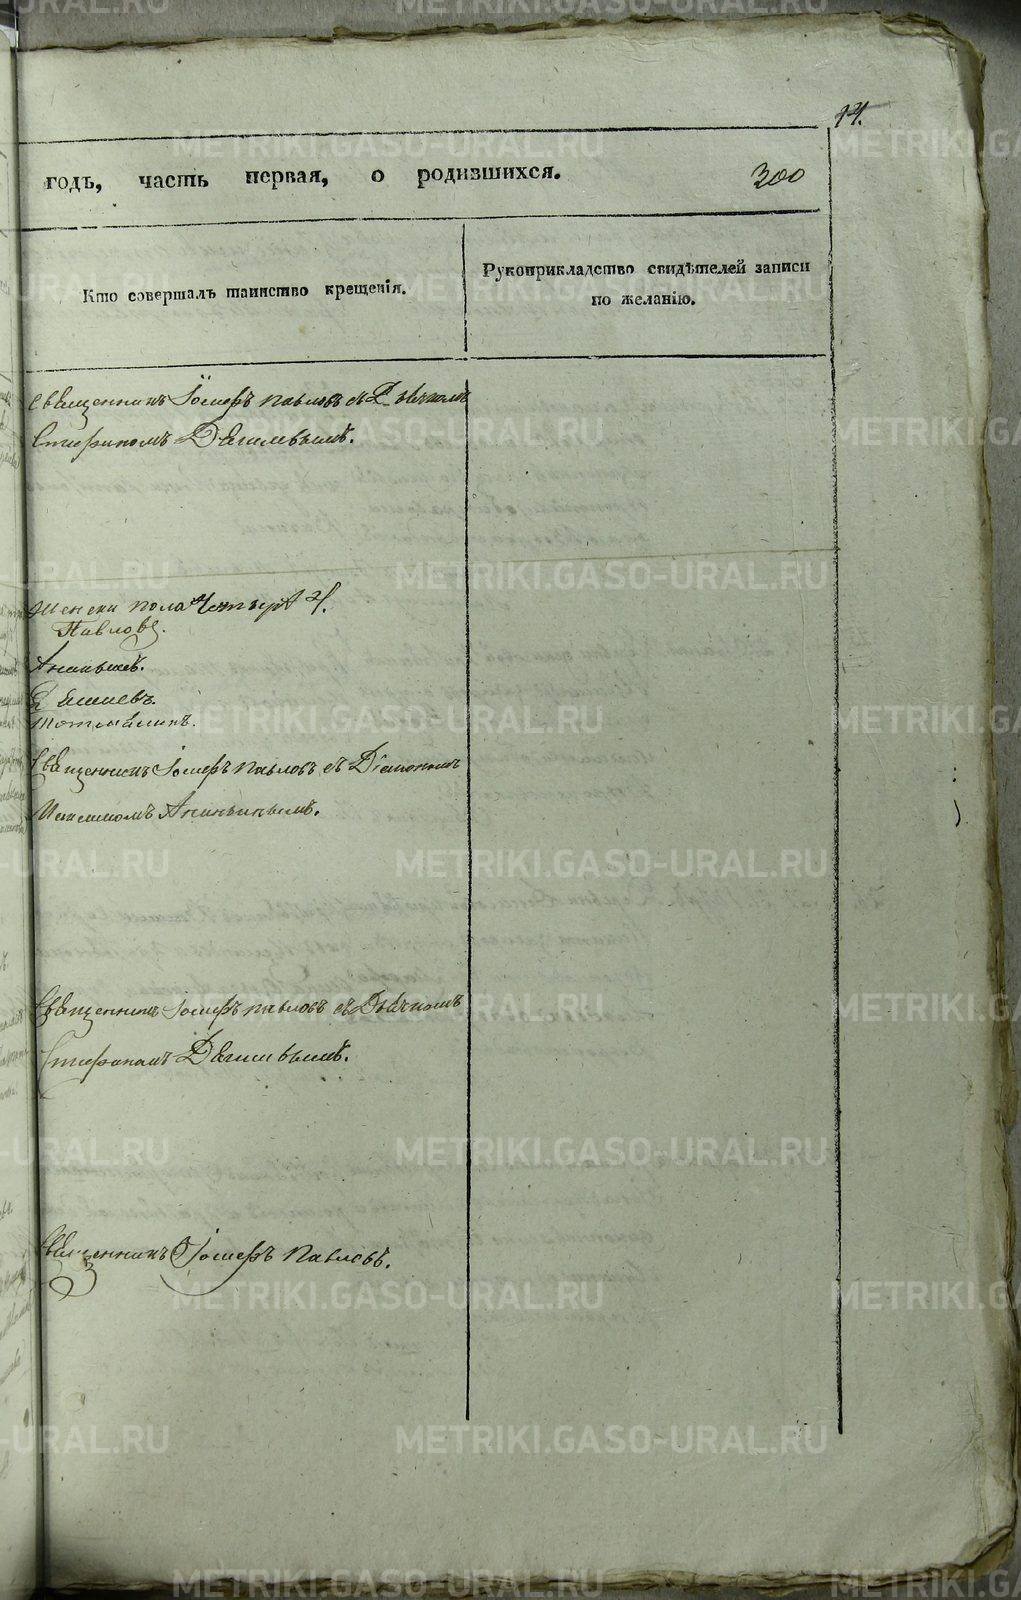 14.
годъ, часть первая, о родившихся. 300
Кто совершалъ таинство крещенія.
Рукоприкладство свидѣтелей записи
по желанію.
Священникъ Іосифъ Павловъ съ Дьячкомъ
Стефаномъ
Женска пола 4.
Павловъ.
Ананьинъ.
Священникъ Іосифъ Павловъ съ Діакономъ
Максимомъ Ананьинымъ.
Священникъ Іосифъ Павловъ съ Дьячкомъ
Стефаномъ
Священникъ Іосифъ Павловъ.
METRIKI.GASO-URAL.RU